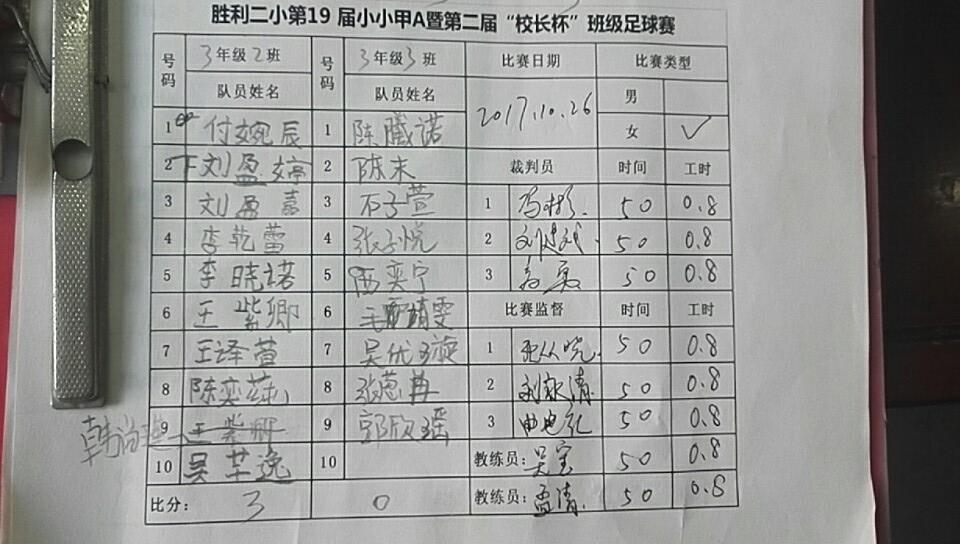 胜利二小第19 届小小甲A暨第二届“校长杯”班级足球赛
号码 3年级2班 号码 3年级3班 比赛日期 比赛类型
队员姓名 队员姓名 2017.10.26 男
1 付婉辰 1 陈曦诺 女 ✓
2 刘盈婷 2 陈末 裁判员 时间 工时
3 刘盈嘉 3 石子萱 1 50 0.8
4 李乾蕾 4 张子悦 2 50 0.8
5 李晓诺 5 西奕宁 3 50 0.8
6 王紫卿 6 毛靖雯 比赛监督 时间 工时
7 王译萱 7 吴优璇 1 50 0.8
8 陈奕 8 2 刘 清 50 0.8
韩尚 9 王紫卿 9 郭欣瑶 3 50 0.8
10 吴芊逸 10 教练员: 吴宝 50 0.8
比分: 3 0 教练员: 孟清 50 0.8